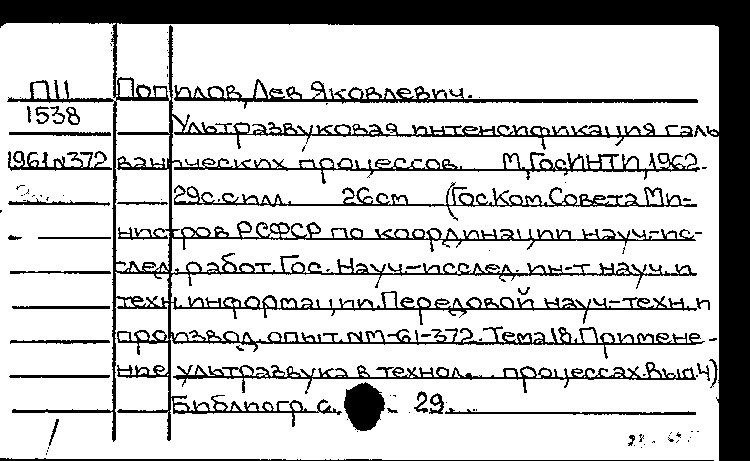 П11 Попилов, Лев Яковлевич.
1538 Ультразвуковая интенсификация галь
1961 №372 ванических процессов. М, ГосИНТИ, 1962.
29с. с илл. 26cm (Гос. Ком. Совета Ми-
нистров РСФСР по координации науч-ис-
след. работ. Гос. Науч-исслед. ин-т науч. и
техн. информации. Передовой науч-техн. и
производ. опыт. №М-61-372. Тема 18. Примене-
ние ультразвука в технол. процессах. Вып 4)
Библиогр. с. 29.